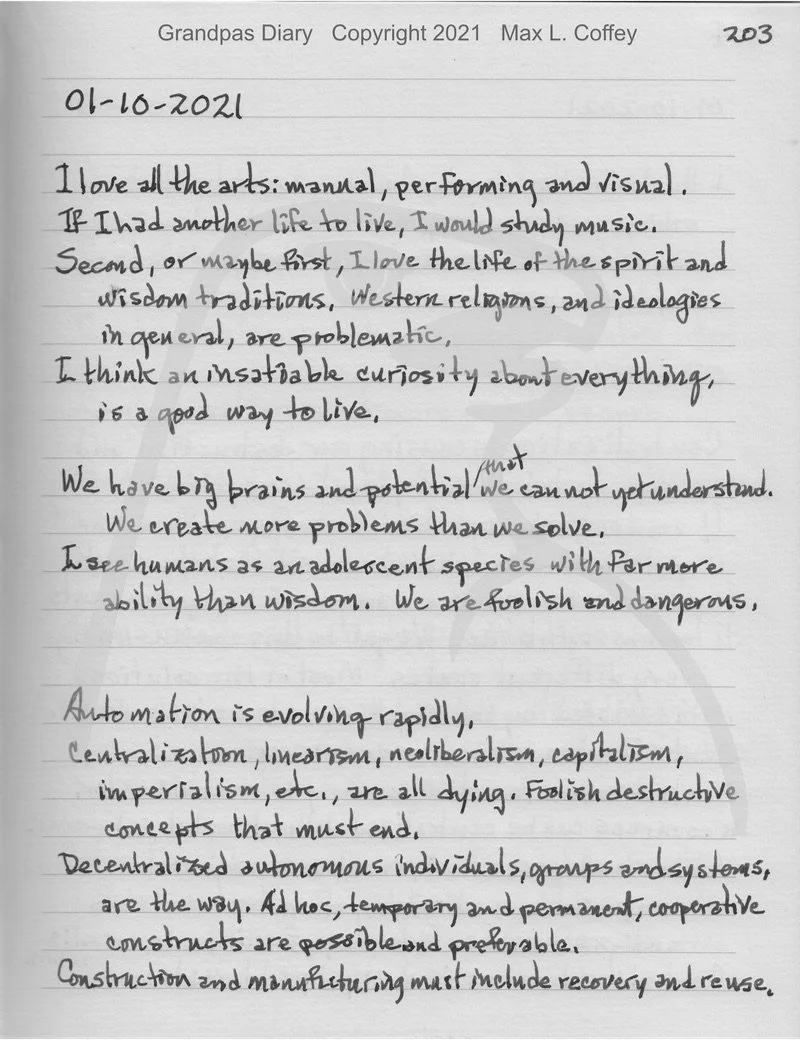 Grandpas Diary Copyright 2021 Max L. Coffey 203
01-10-2021
I love all the arts: manual, performing and visual.
If I had another life to live, I would study music.
Second, or maybe first, I love the life of the spirit and
wisdom traditions. Western religions, and ideologies
in general, are problematic.
I think an insatiable curiosity about everything,
is a good way to live.
that
We have big brains and potential we can not yet understand.
We create more problems than we solve.
I see humans as an adolescent species with far more
ability than wisdom. We are foolish and dangerous.
Automation is evolving rapidly.
Centralization, linearism, neoliberalism, capitalism,
imperialism, etc., are all dying. Foolish destructive
concepts that must end.
Decentralized autonomous individuals, groups and systems,
are the way. Ad hoc, temporary and permanent, cooperative
constructs are possible and preferable.
Construction and manufacturing must include recovery and reuse.